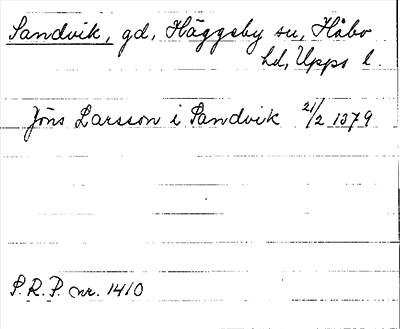 Sandvik, gd, Häggeby sn, Håbo
hd, Upps l.
Jöns Larsson i Sandvik 21/2 1379
P.R.P. nr. 1410